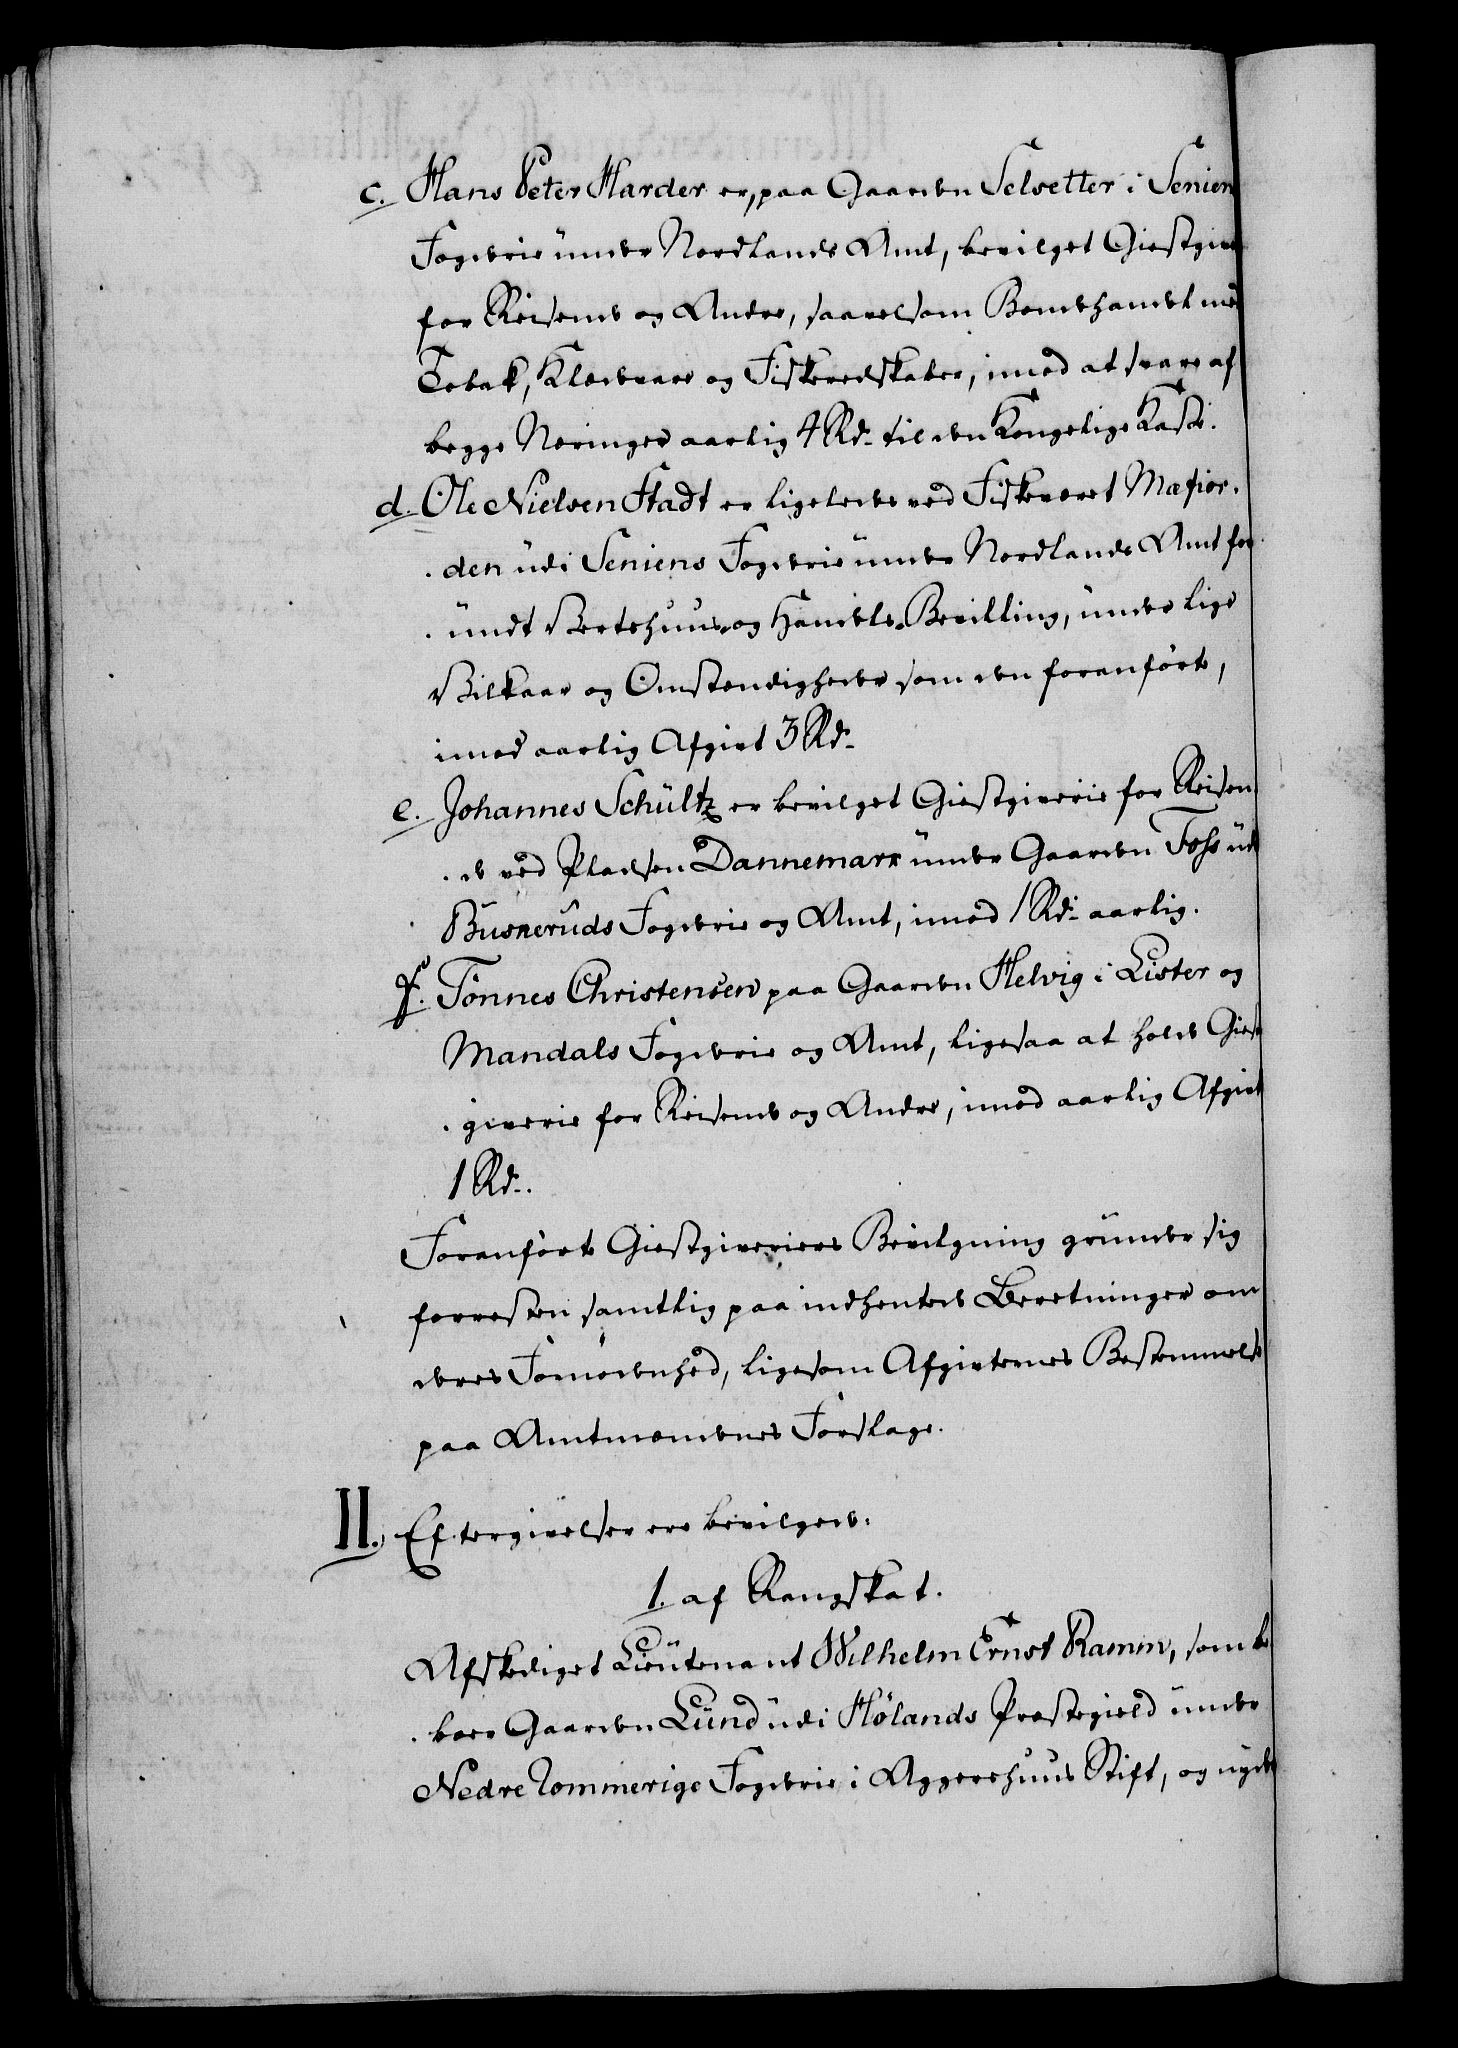 c. Hans Peter Harder er, paa Gaarden Selvetter i Senien
Fogderie under Nordlands Amt, bevilget Giestgive
for Reisende og Andre, saavelsom Bondehandel med
Tobak, Klædevare og Fiskeredskaber, imod at svare af
begge Næringer aarlig 4 Rd. til den Kongelige Kasse.
d. Ole Nielsen Stadt er ligeledes ved Fiskeværet Mafior-
den udi Seniens Fogderie under Nordlands Amt for
undt Værtshuus og Handels Bevilling, under lige
Vilkaar og Omstændigheder som den foranførte,
imod aarlig Afgivt 3 Rd.
e. Johannes Schültz er bevilget Giestgiverie for Reisen
de ved Pladsen Dannemarx under Gaarden Foss ud
Buskeruds Fogderie og Amt, imod 1 Rd. aarlig.
f. Tønnes Christensen paa Gaarden Helvig i Lister og
Mandals Fogderie og Amt, ligesaa at holde Giest
giverie for Reisende og Andre, imod aarlig Afgivt
1 Rd.
Foranførte Giestgiveriers Bevilgning grunder sig
forresten samtlig paa indhentede Beretninger om
deres Fornødenhed, ligesom Afgivternes Bestemmelse
paa Amtmændenes Forslage.
II. Eftergivelser ere bevilgede.
1. af Rangskat.
Afskediget Lieutenant Wilhelm Ernst Ramm, som be
boer Gaarden Lund udi Hølands Præstegield under
Nedre Rommerige Fogderie i Aggershuus Stift, og nyder